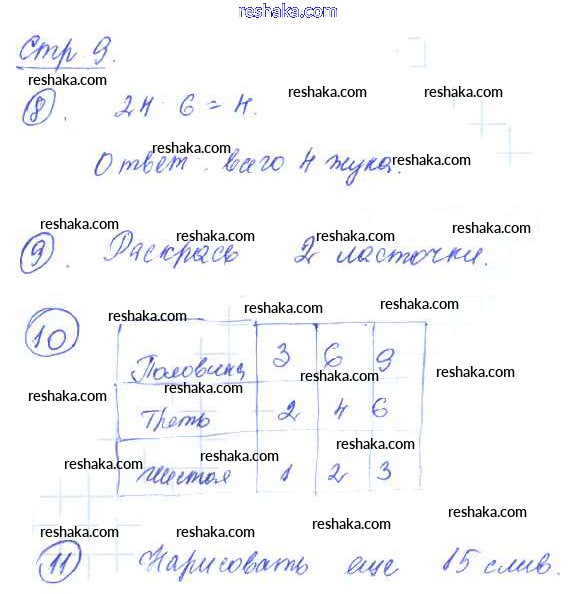 reshaka.com
Стр 9.
reshaka.com reshaka.com
(8). 24 : 6 = 4.
reshaka.com reshaka.com
Ответ: всего 4 жука.
reshaka.com
reshaka.com reshaka.com reshaka.com reshaka.com
(9). Раскрась 2 ласточки.
reshaka.com reshaka.com reshaka.com
(10)
Половина 3 6 9
reshaka.com reshaka.com reshaka.com
Треть 2 4 6
reshaka.com reshaka.com
reshaka.com reshaka.com
Шестая 1 2 3
reshaka.com reshaka.com reshaka.com
reshaka.com reshaka.com reshaka.com
(11) Нарисовать еще 15 слив.
reshaka.com reshaka.com reshaka.com